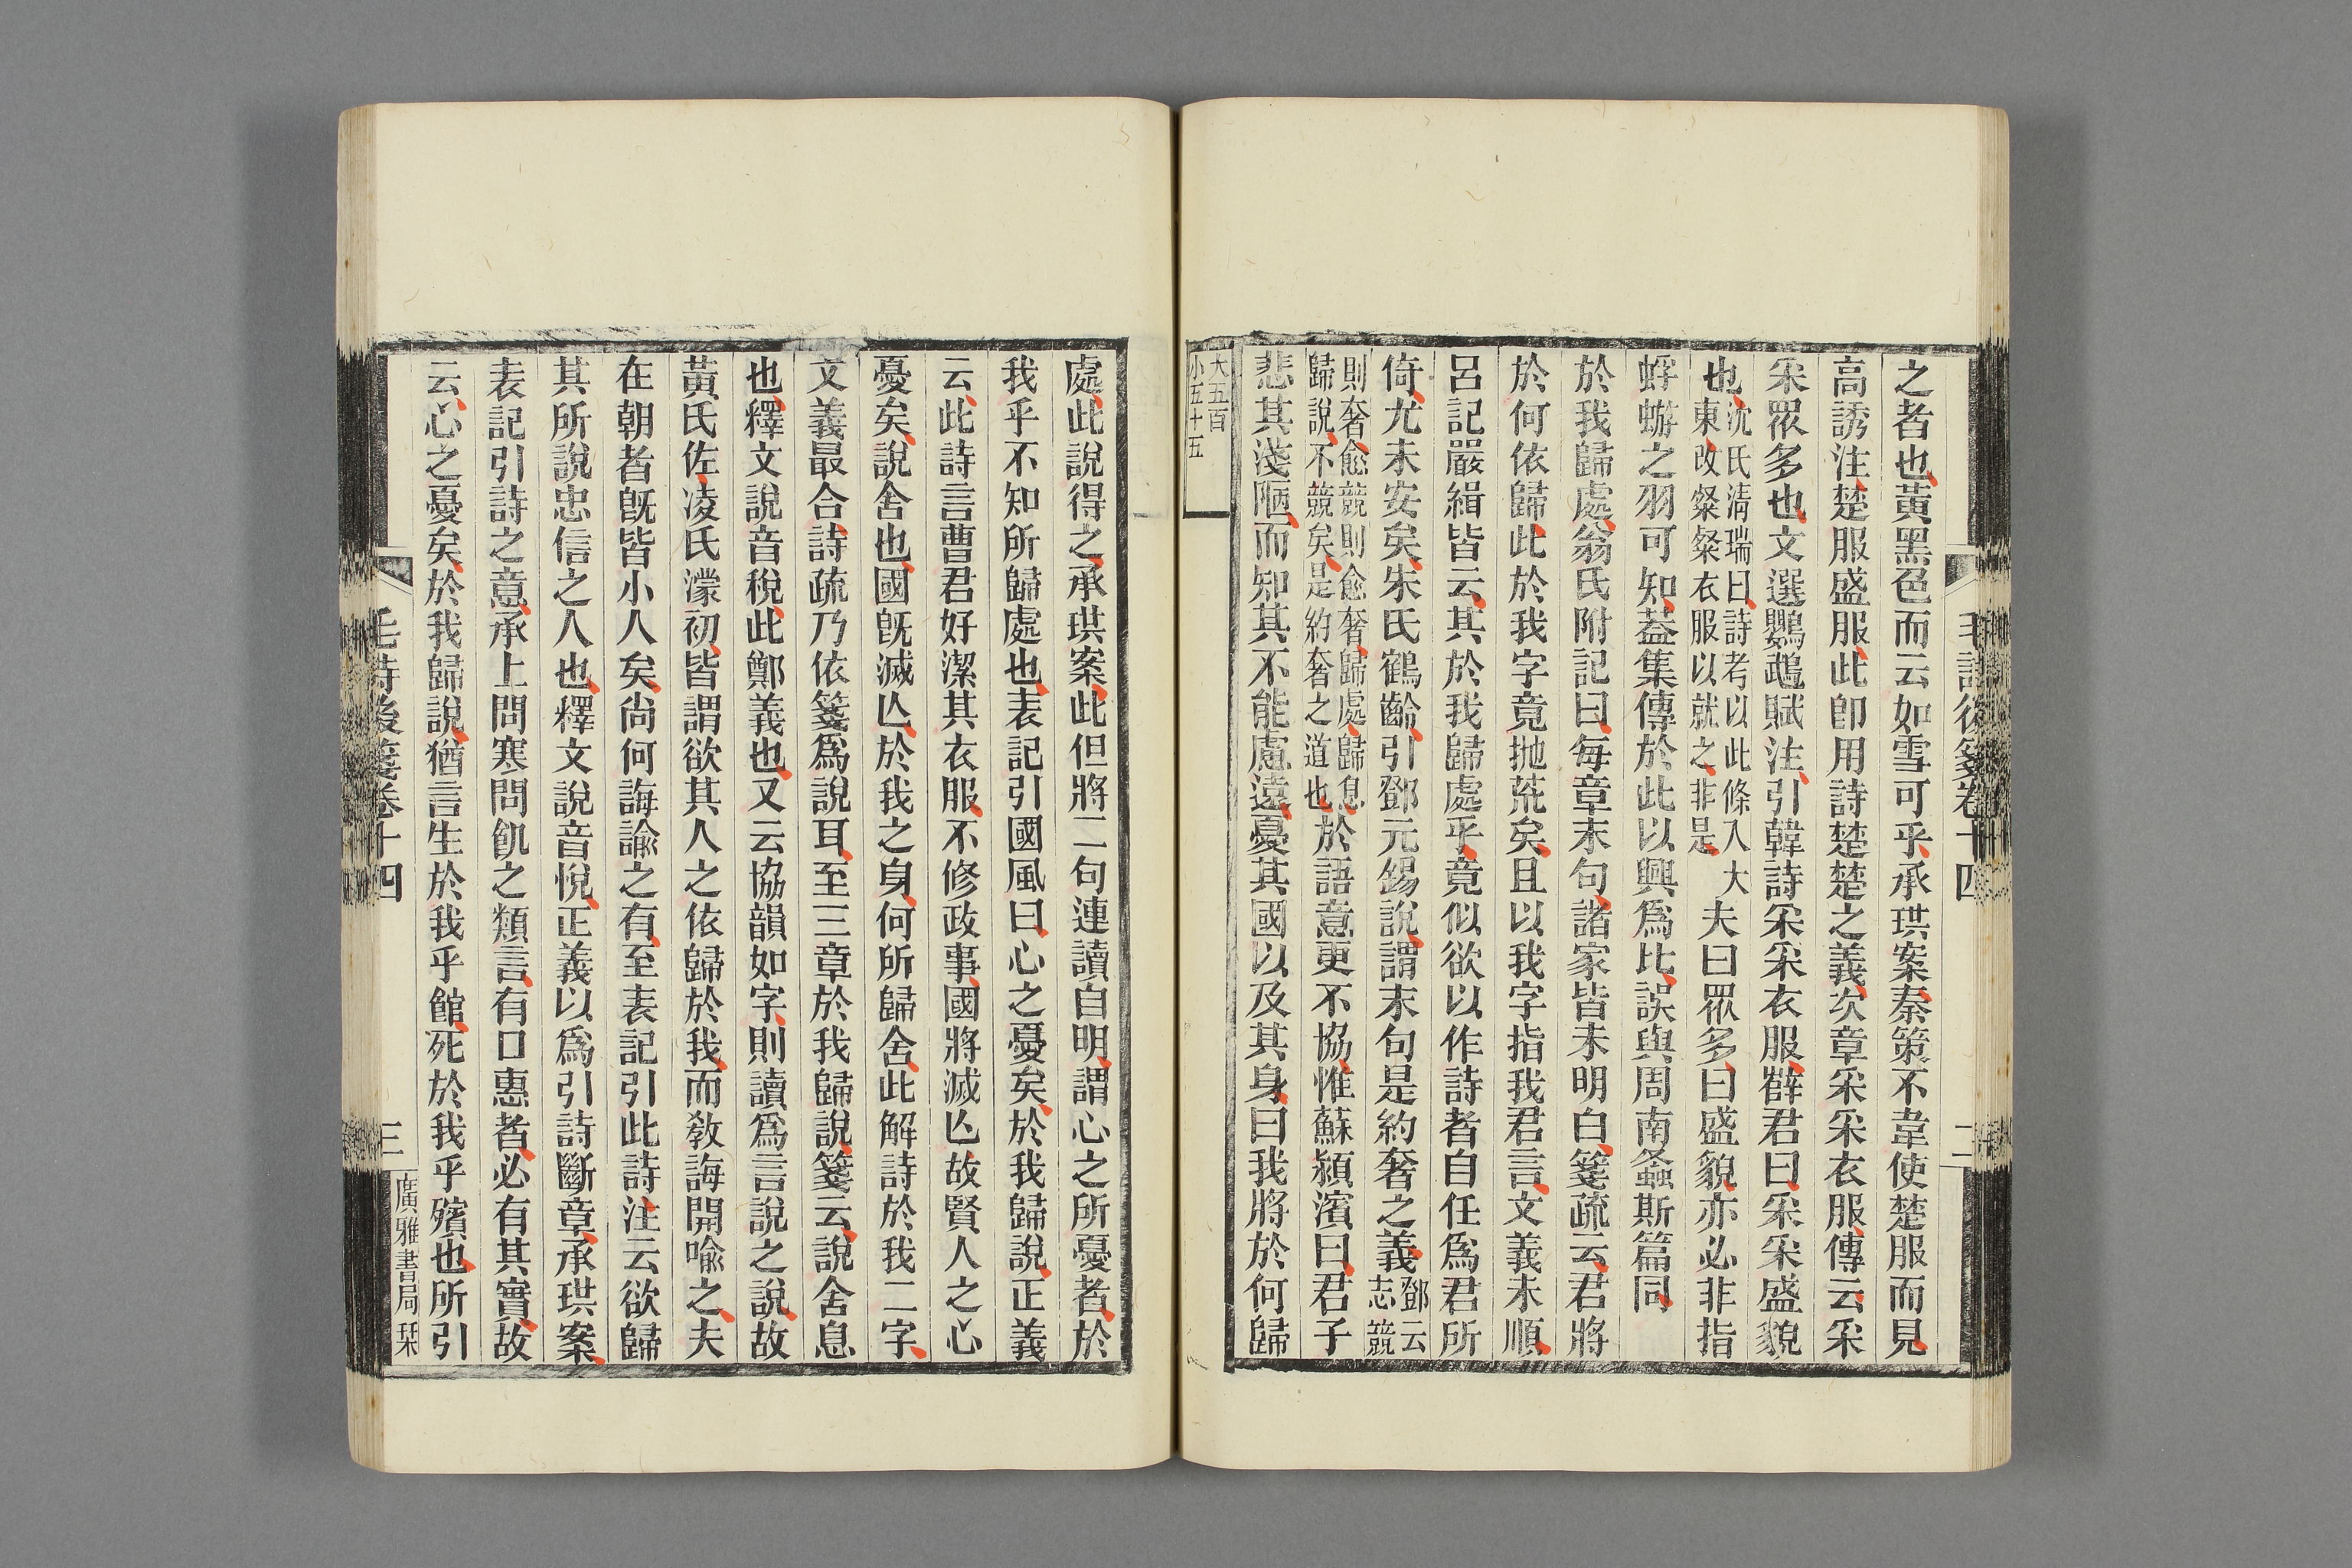 毛詩後箋卷十四 二
之者也黃黑色而云如雪可乎承珙案秦策不韋使楚服而見
高誘注楚服盛服此卽用詩楚楚之義次章采采衣服傳云采
采眾多也文選鸚鵡賦注引韓詩采采衣服薛君曰采采盛貌
也沈氏淸瑞曰詩考以此條入大
東改粲粲衣服以就之非是夫曰眾多曰盛貌亦必非指
蜉蝣之羽可知葢集傳於此以興爲比誤與周南螽斯篇同
於我歸處翁氏附記曰每章末句諸家皆未明白箋疏云君將
於何依歸此於我字竟抛荒矣且以我字指我君言文義未順
呂記嚴緝皆云其於我歸處乎竟似欲以作詩者自任爲君所
倚尤未安矣朱氏鶴齡引鄧元錫說謂末句是約奢之義鄧云
志競
則奢愈競則愈奢歸處歸息
歸說不競矣是約奢之道也於語意更不協惟蘇潁濱曰君子
悲其淺陋而知其不能慮遠憂其國以及其身曰我將於何歸
大五百
小五十五
處此說得之承珙案此但將二句連讀自明謂心之所憂者於
我乎不知所歸處也表記引國風曰心之憂矣於我歸說正義
云此詩言曹君好潔其衣服不修政事國將滅亾故賢人之心
憂矣說舍也國旣滅亾於我之身何所歸舍此解詩於我二字
文義最合詩疏乃依箋爲說耳至三章於我歸說箋云說舍息
也釋文說音稅此鄭義也又云協韻如字則讀爲言說之說故
黃氏佐凌氏濛初皆謂欲其人之依歸於我而敎誨開喻之夫
在朝者旣皆小人矣尚何誨諭之有至表記引此詩注云欲歸
其所說忠信之人也釋文說音悅正義以爲引詩斷章承珙案
表記引詩之意承上問寒問飢之類言有口惠者必有其實故
云心之憂矣於我歸說猶言生於我乎館死於我乎殯也所引
毛詩後箋卷十四 三 廣雅書局栞